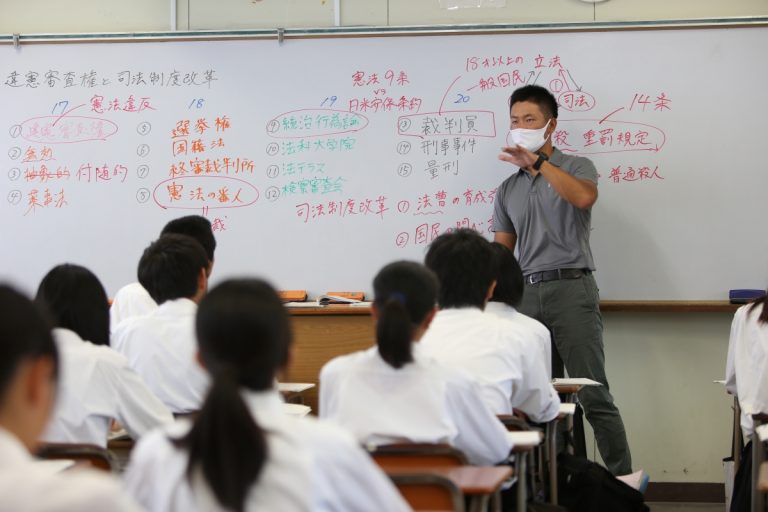 違憲審査権と司法制度改革
17 憲法違反
①違憲審査権
②無効
③抽象的 付随的
④薬事法
18
⑤ 選挙権
⑥ 国籍法
⑦ 終審裁判所
⑧ 憲法の番人
19
⑨統治行為論
⑩法科大学院
⑪法テラス
⑫検察審査会
憲法9条
vs
日米安保条約
20
18才以上の
一般国民
⑬ 裁判員
⑭ 刑事事件
⑮ 量刑
立法
①
司法
14条
重罰規定
普通殺人
司法制度改革
①法曹の育成
②国民の関心